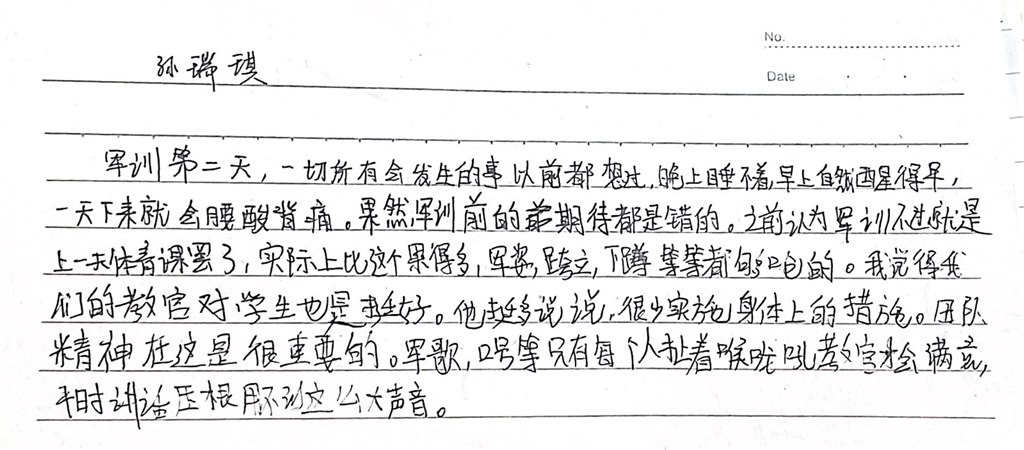 No.
孙瑞琪
Date
军训第二天，一切所有会发生的事以前都想过，晚上睡不着，早上自然醒得早，
一天下来就会腰酸背痛。果然军训前的期待都是错的。之前认为军训不过就是
上一天体育课罢了，实际上比这个累得多，军姿，跨立，下蹲等等都够呛的。我觉得我
们的教官对学生也是挺好。他挺多说说，很少实施身体上的措施。团队
精神在这是很重要的。军歌，口号等只有每个人扯着喉咙吼教官才会满意，
平时讲话压根用不到这么大声音。